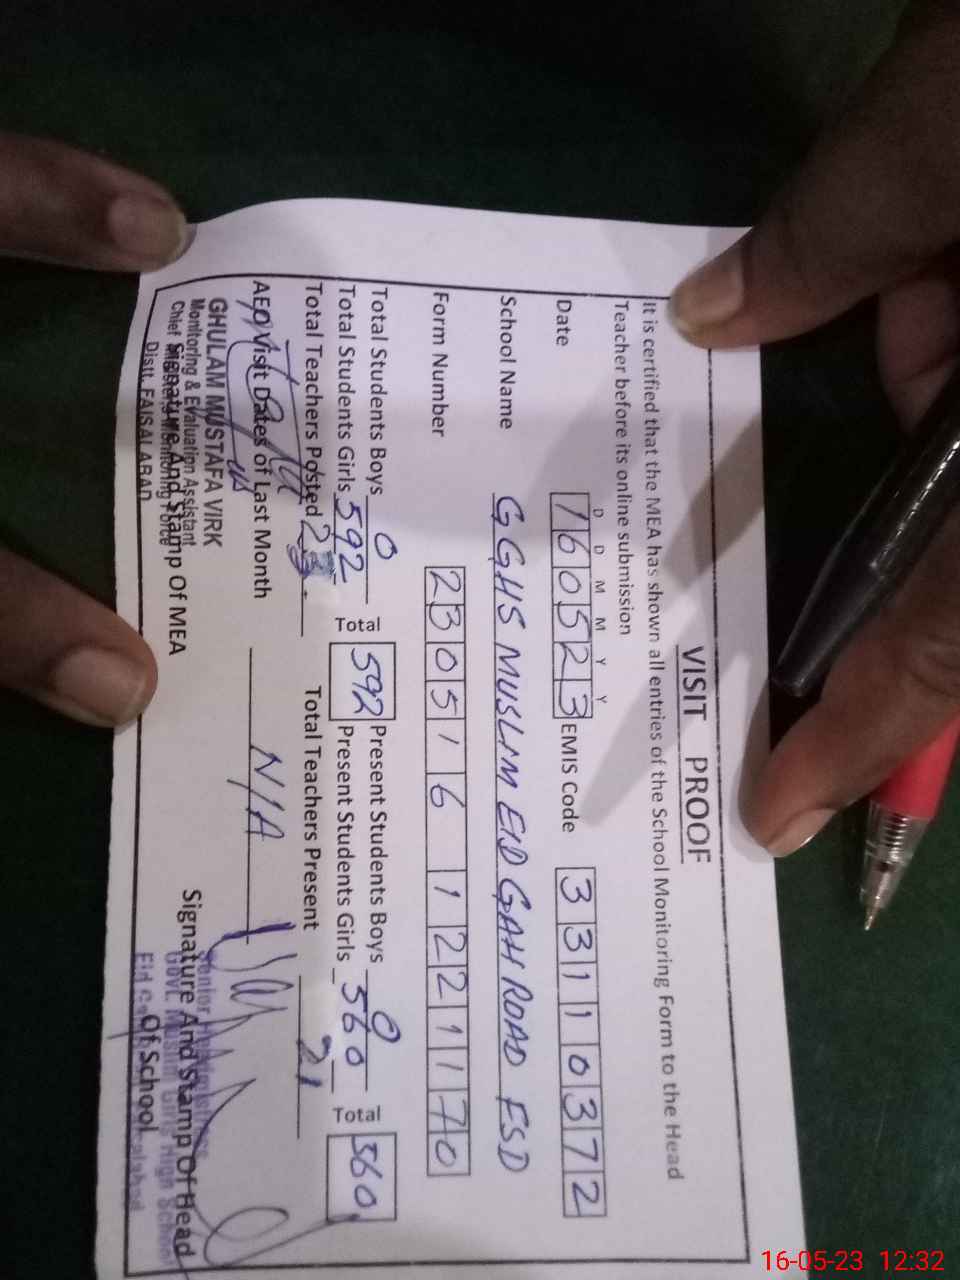 VISIT PROOF
It is certified that the MEA has shown all entries of the School Monitoring Form to the Head
Teacher before its online submission
D D M M Y Y
Date 160523 EMIS Code 33110372
School Name GGHS MUSLIM EID GAH ROAD FSD
Form Number 230516 1221170
Total Students Boys 0 Present Students Boys 0
Total Students Girls 592 Total 592 Present Students Girls 560 Total 560
Total Teachers Posted Total Teachers Present 21
AEO Visit Dates of Last Month N/A
GHULAM MUSTAFA VIRK
Monitoring & Evaluation Assistant
Chief Minister's Monitoring Force
Distt. FAISALABAD
Signature And Stamp Of MEA
Signature And Stamp Of Head
Of School
Senior Headmistress
Govt. Muslim Girls High School
16-05-23 12:32